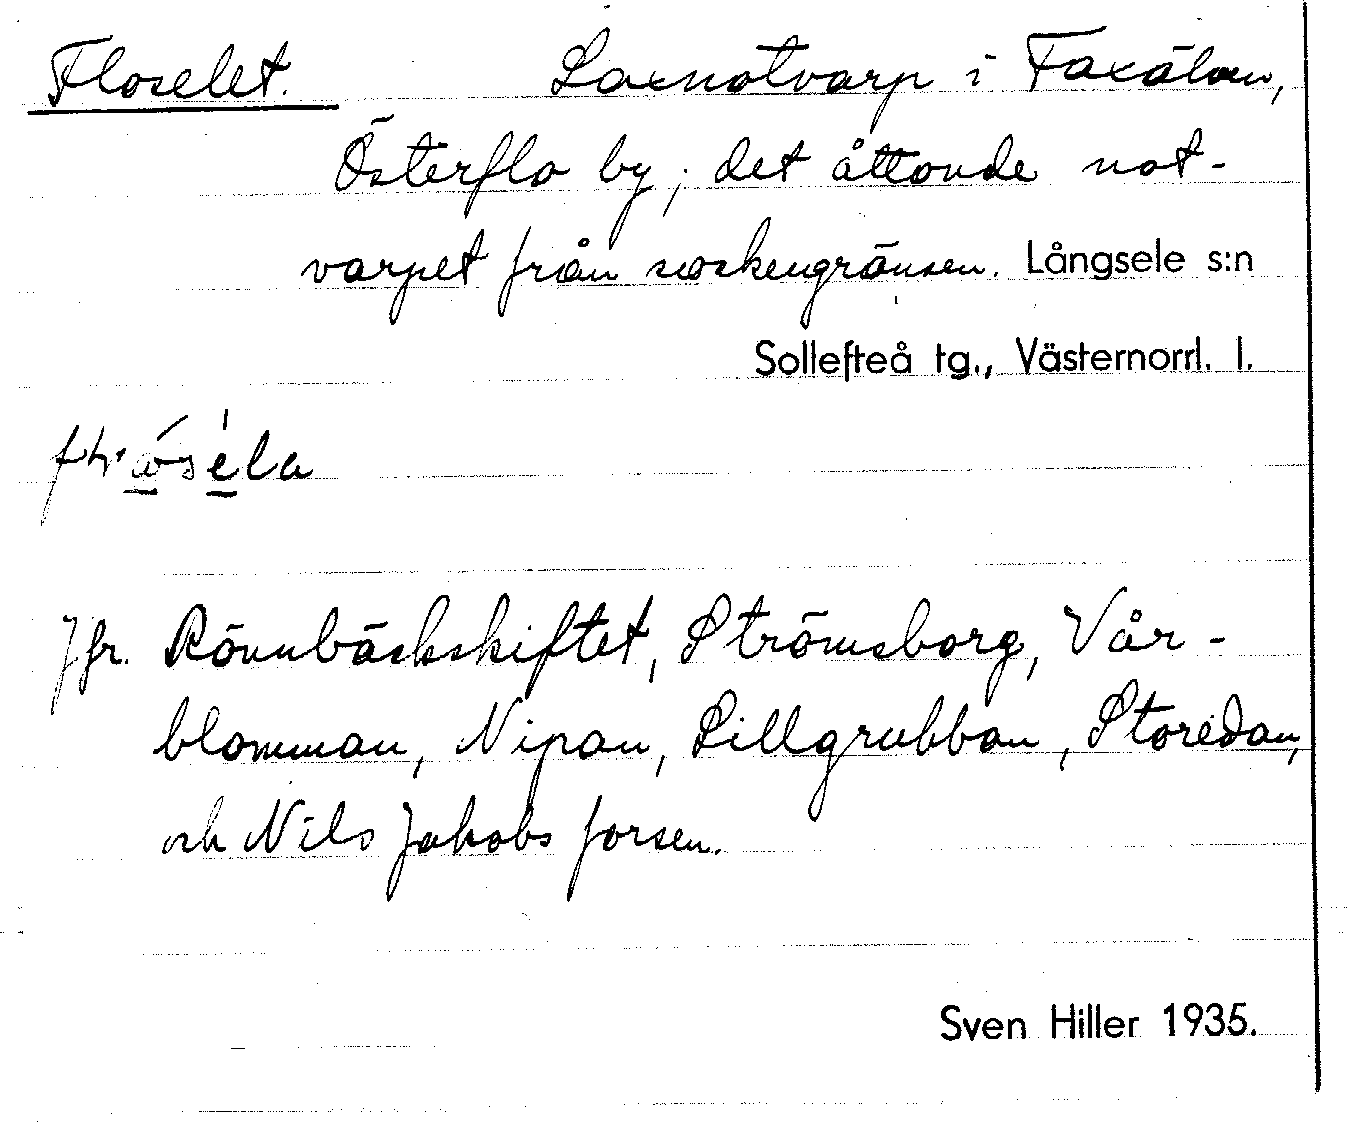 Floselet. Laxnotvarp i Faxälven,
Österflo by; det åttonde not-
varpet från sockengränsen. Långsele s:n
Sollefteå tg., Västernorrl. l.
Jfr. Rönnbäckskiftet, Strömsborg, Vår-
blomman, Nipan, Lillgrubban, Storedan,
och Nils Jakobs forsen.
Sven Hiller 1935.